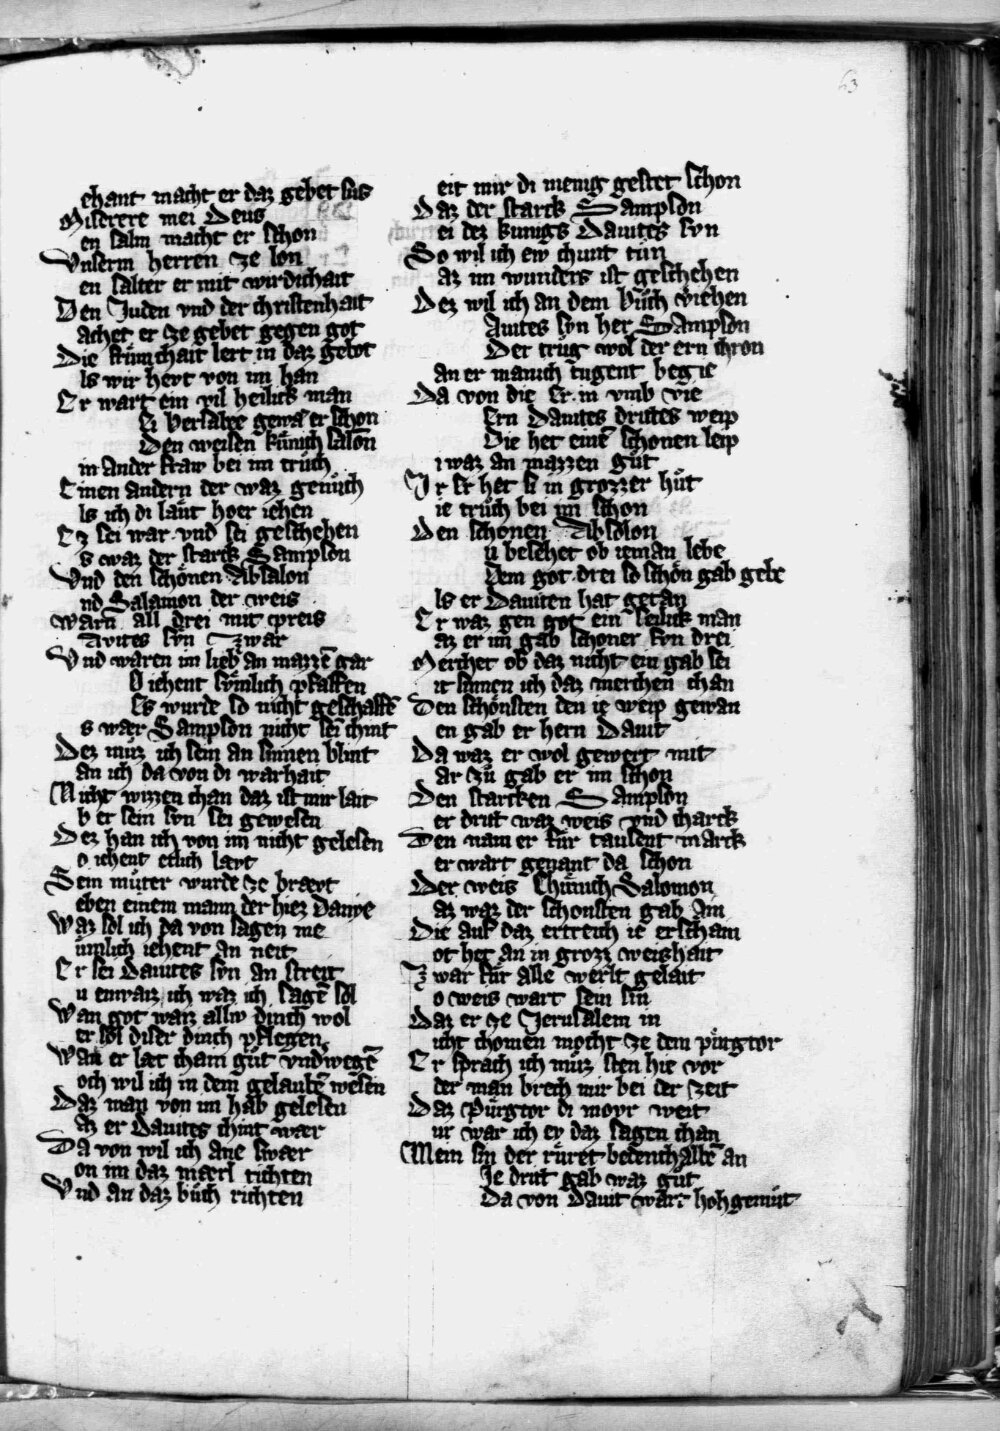 63
ehant macht er daz gebet sus
Miserere mei Deus
en salm macht er schon
Vnserm herren ze lon
en salter er mit wirdichait
Den Juden vnd der christenhait
achet er ze gebet gegen got
Die kůmchait lert in daz gebot
ls wir hert von im han
Er wart ein vil heilick man
Ei Versabee gewā er schon
Den weisen kůnich salōn
in ander fraw bei im trůch
Einen andern der waz genůch
ls ich di laůt hoer iehen
Ez sei war vnd sei geschehen
s waz der starck Sampson
Vnd den schönen Absalon
nd Salamon der weis
Warn all drei mit preis
Auites sůn Zwar
Vnd waren im lieb an mazzē gar
O iehent sůmlich pfaffen
Es wurde so nicht geschaffē
s wær Sampson nicht sei chint
Dez můz ich sein an sinnen blint
an ich da von di warhait
Nicht wizzen chan daz ist mir lait
b er sein sůn sei gewesen
Dez han ich von im nicht gelesen
o iehent etlich lært
Sein můter wurde ze bræwt
eben einem mann der hiez Danye
Waz sol ich da von sagen me
ůmlich iehent an neit
Er sei Dauites sůn an streit
u enwaiz ich waz ich sagē sol
Wan got waiz allw dinch wol
er sol diser dinch pflegen
Wan er læt cham gůt vndwegē
och wil ich in dem gelaubē wesen
Daz man von im hab gelesen
az er Dauites chint wær
Da von wil ich ane swær
on im daz mærl tichten
Vnd an daz bůch richten
eit mir di menig gestet schon
Daz der starck Sampson
ei dez kunigs Dauites sůn
So wil ich ew chunt tůn
az im wunders ist geschehen
Dez wil ich an dem bůch viehen
Auites sůn her Sampson
Der trůg wol der ern chron
an er manich tugent begie
Da von die Er in vmb vie
Ern Dauites drittes weip
Die het einē schonen leip
i waz an mazzen gůt
Jr Er het si in grozzer hůt
ie trůch bei im schon
Den schonen Absolon
u besehet ob ieman lebe
Dem got drei so schön gab gebe
ls er Dauiten hat getan
Er waz gen got ein heilick man
az er im gab schoner sůn drei
Merchet ob daz nicht ein gab sei
it sinnen ich daz merchen chan
Den schönsten den ie weip gewan
en gab er hern Dauit
Da waz er wol gewert mit
ar zů gab er im schon
Den starcken Sampson
er drit waz weis vnd charck
Den nam er fůr tausent marck
er wart genant da schon
Der weis Chůnich Salomon
az waz der schonsten gab ain
Die auf daz ertreich ie erschain
ot het an in grozz weishait
Zwar fůr alle werlt gelait
o weis wart sein sin
Daz er ze Jerusalem in
icht chomen mocht ze dem půrgtor
Er sprach ich můz sten hie vor
der man brech mir bei der zeit
Daz Půrgtor di moyr weit
ur war ich ew daz sagen chan
Mein sin der růret bedenthalbē an
Je drit gab waz gůt
Da von Dauit wart hohgemůt